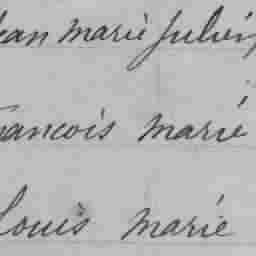 Jean marie Julien
francois marie
Louis marie